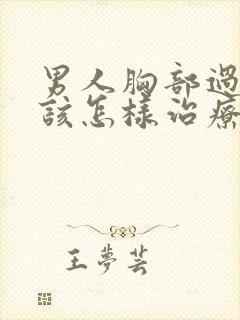 男人胸部過
該怎樣治療
王夢芸